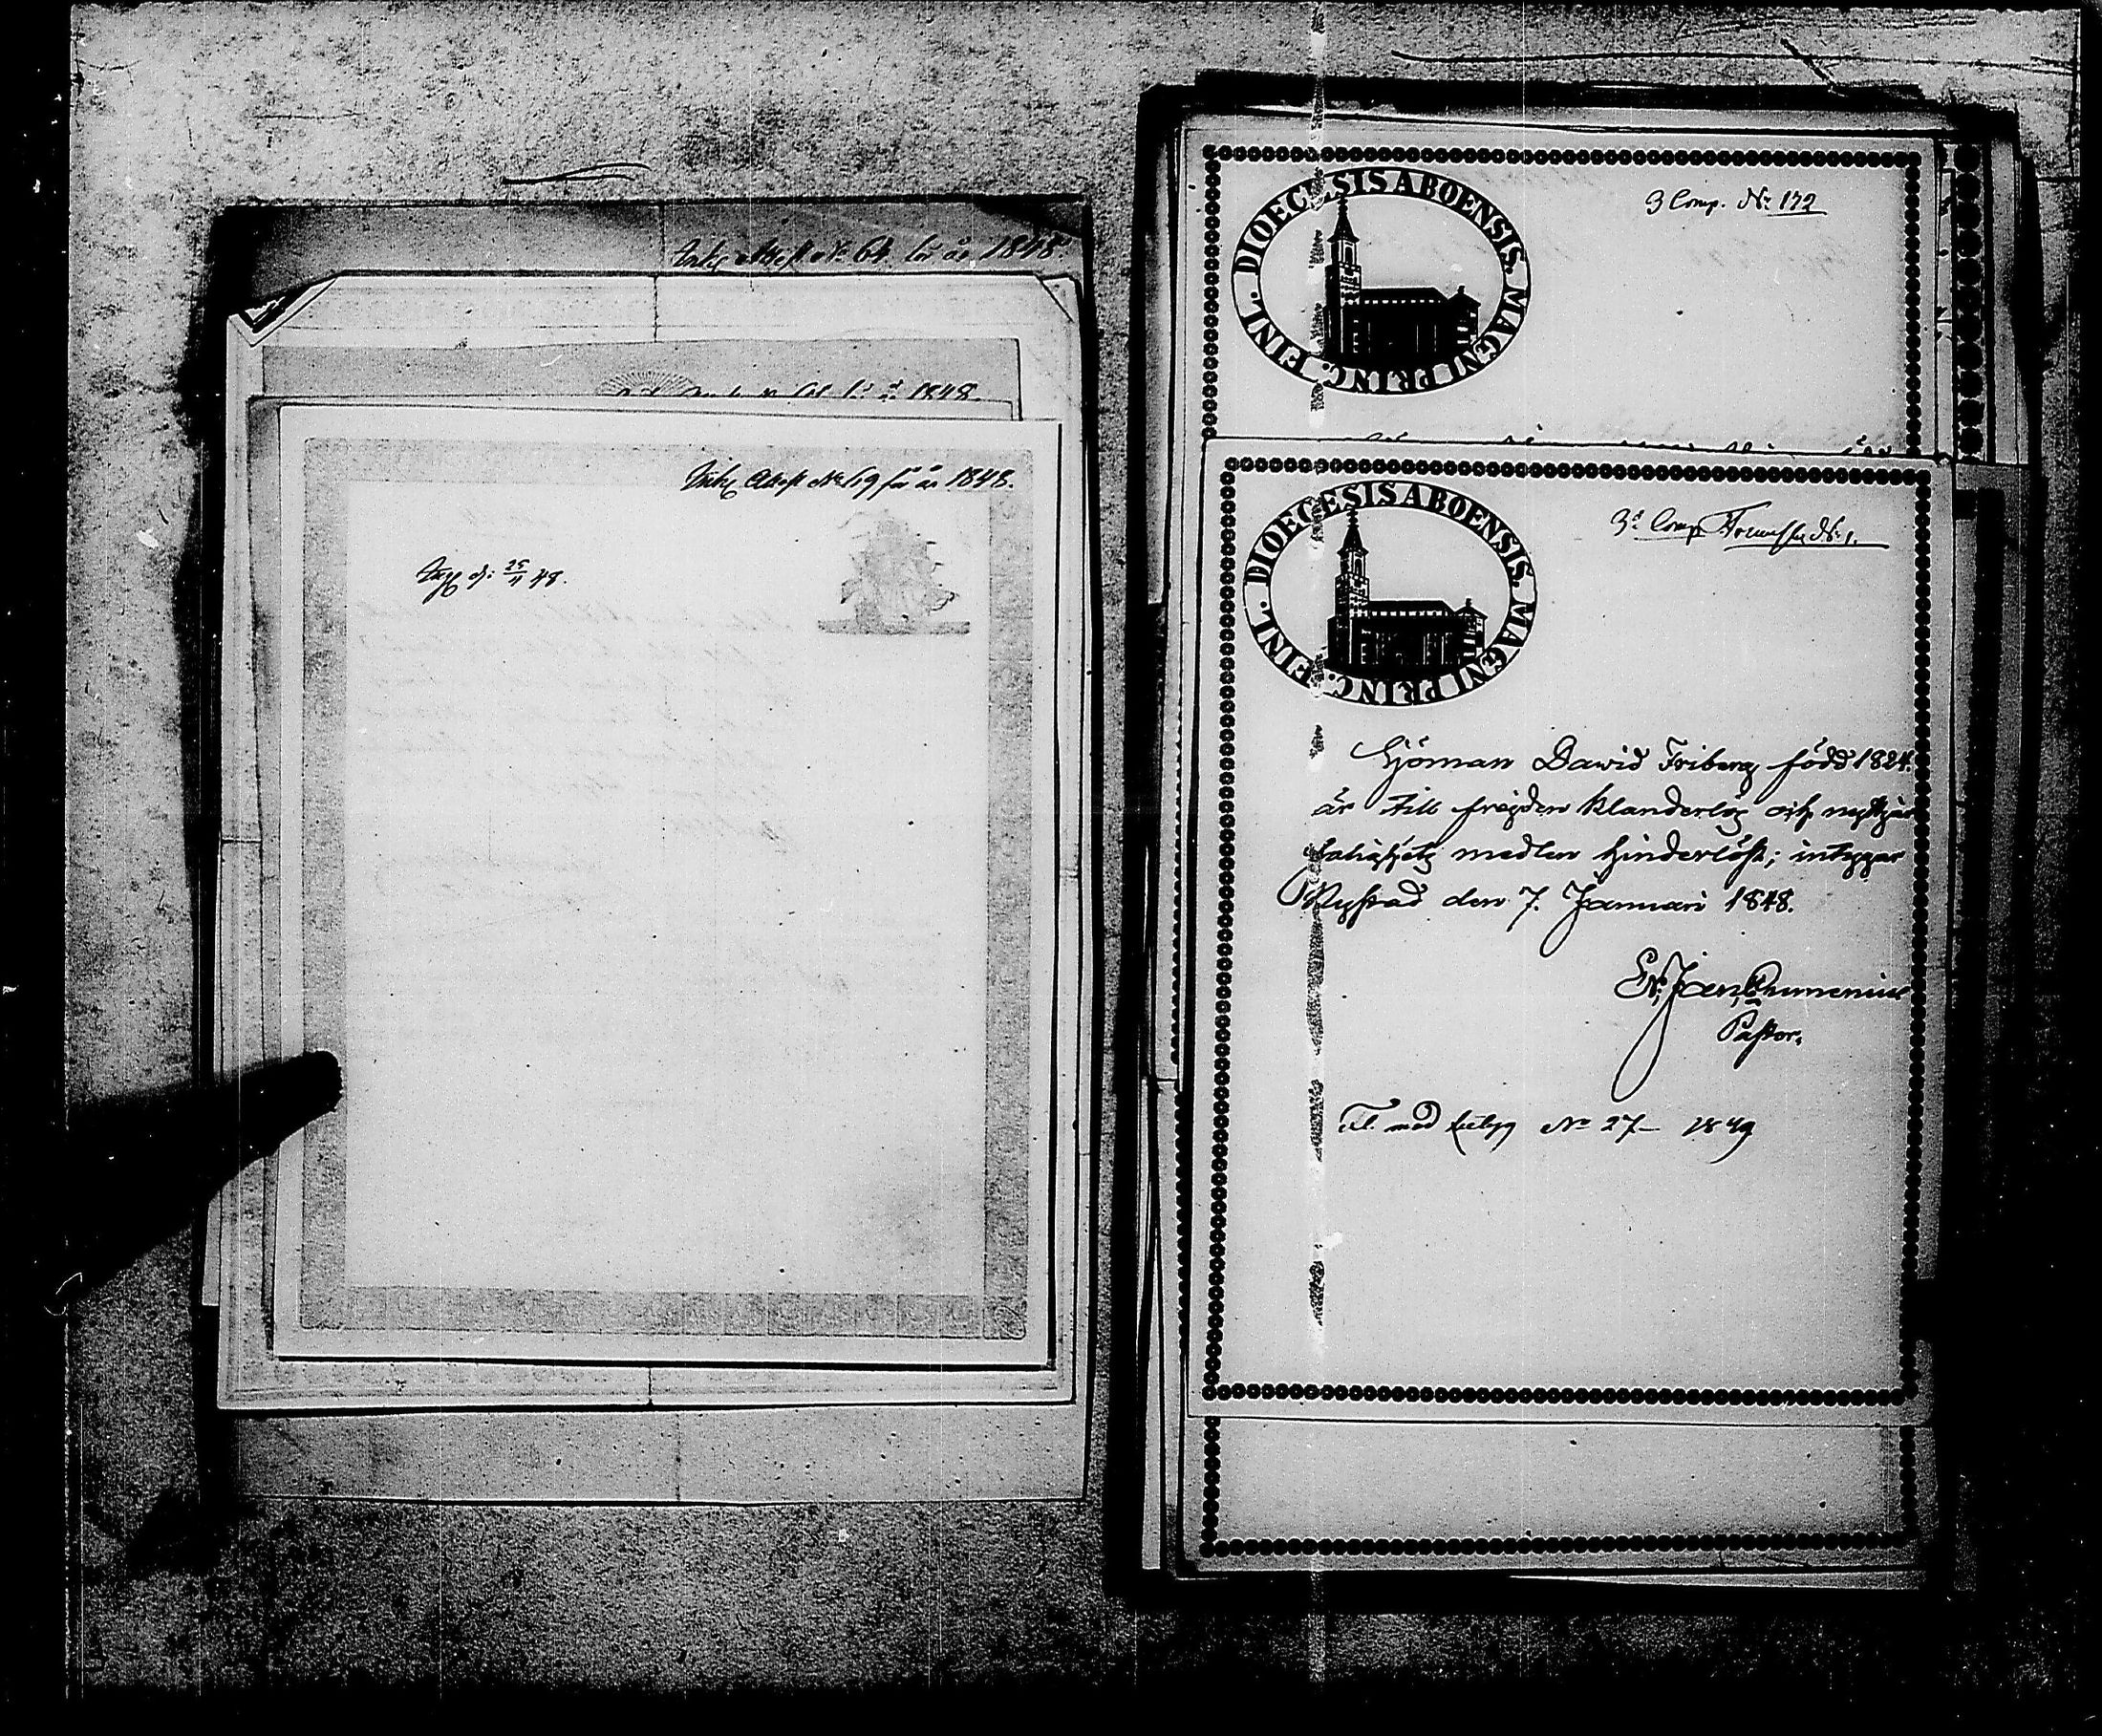 Inkg Attest No 64 för år 1848.
1848.
Inkg Attest No 69 för år 1848.
d: 25/11 48.
DIOECESIS ABOENSIS. MAGNI PRINC. FINL.
3 Comp. No 172
DIOECESIS ABOENSIS. MAGNI PRINC. FINL.
3e Comp No 1.
Sjöman Dawid Friberg född 1824.
är till frejden klanderlös och nyttjar
salighets medlen hinderlöst; intygar
Nystad den 7. Januari 1848.
Pastor.
Fl. med betyg No 27– 1849